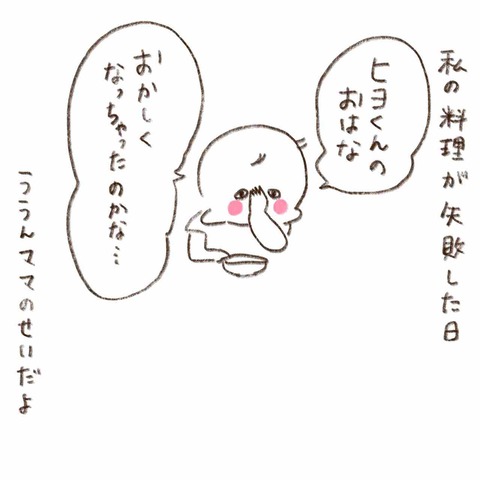 私の料理が失敗した日
ヒヨくんの
おはな
おかしく
なっちゃったのかな…
ううんママのせいだよ